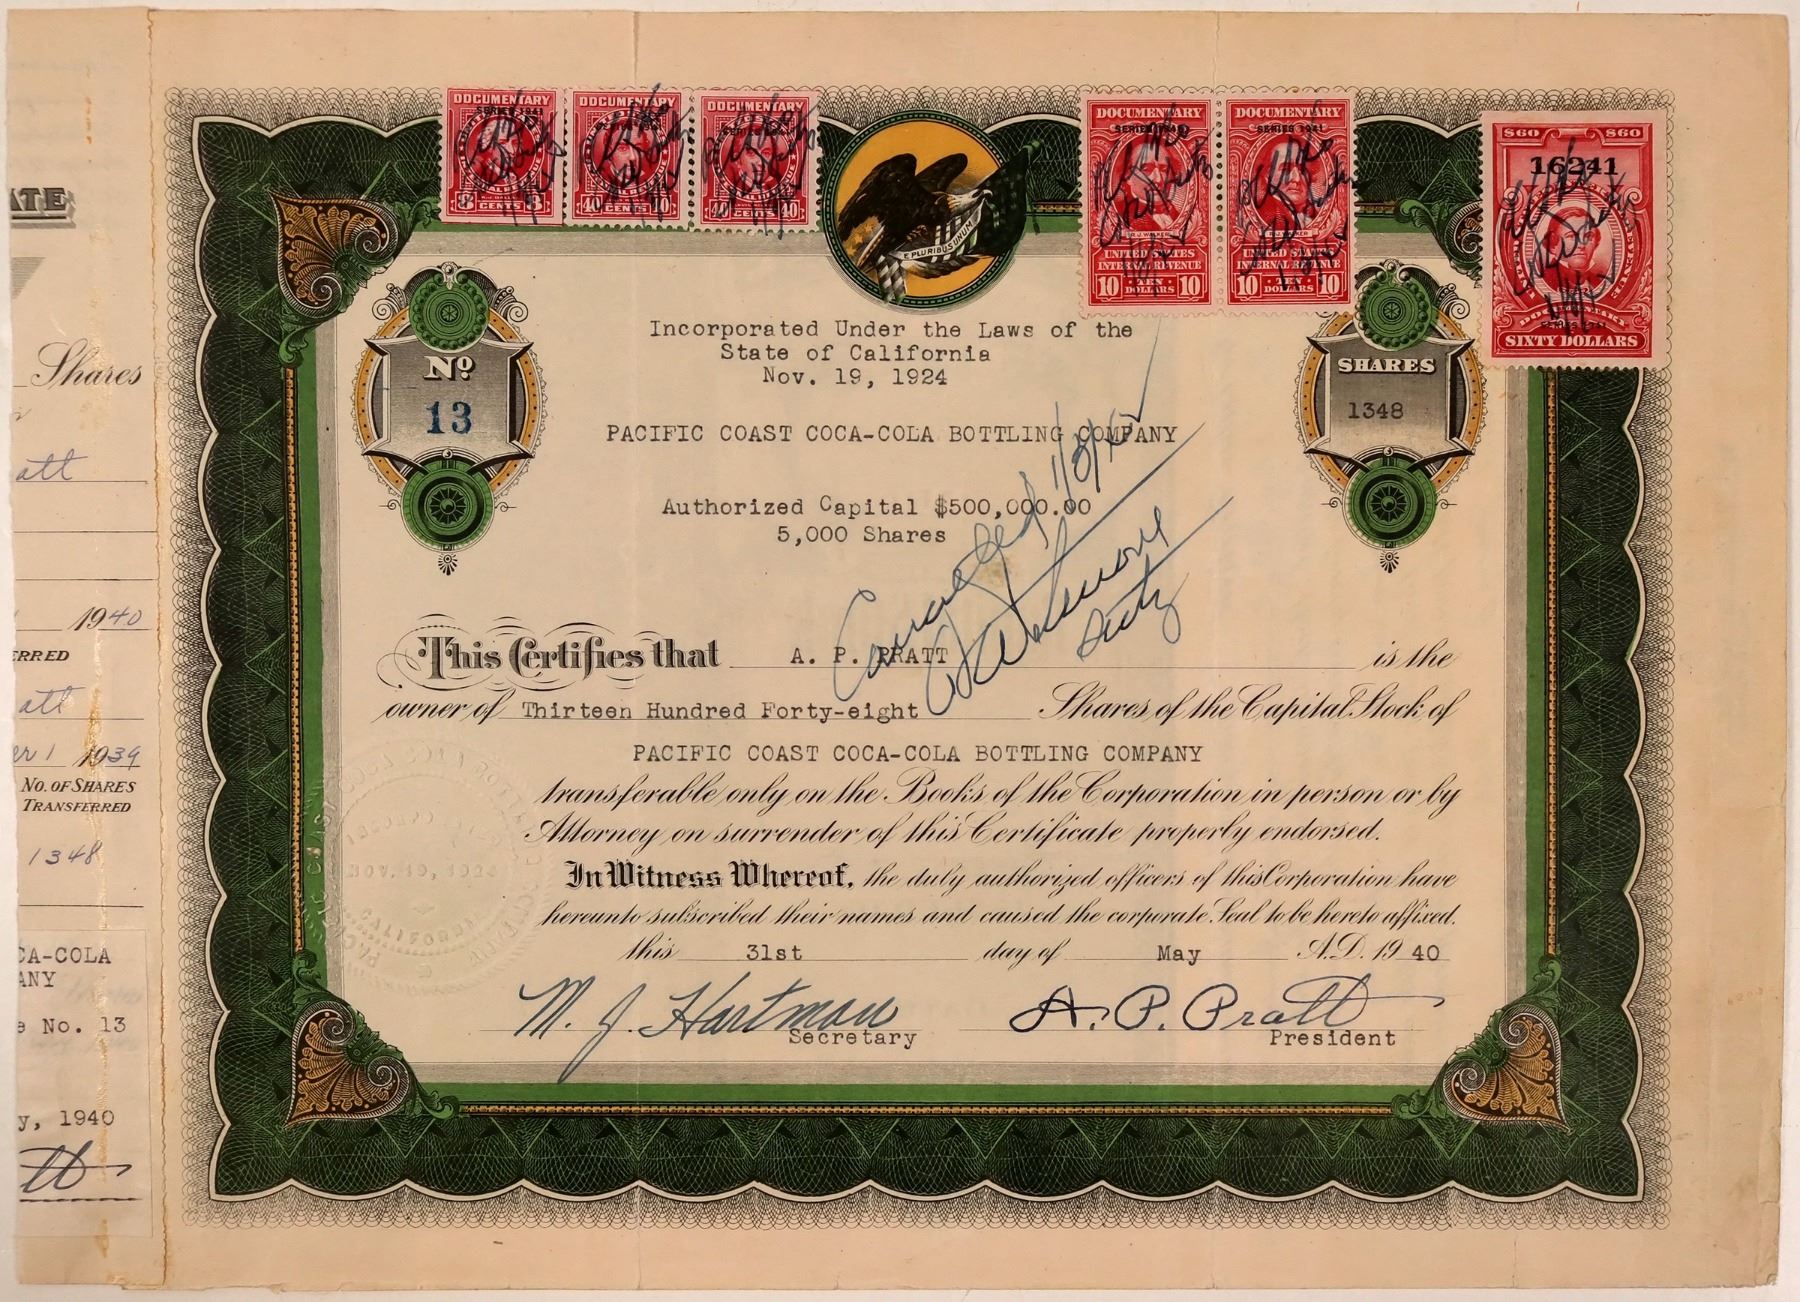 DOCUMENTARY
SERIES 1941
8 CENTS 8
DOCUMENTARY
40 CENTS 40
DOCUMENTARY
SERIES 1941
40 CENTS 40
E PLURIBUS UNUM
DOCUMENTARY
SERIES 1941
R. J. WALKER
UNITED STATES
INTERNAL REVENUE
10 TEN DOLLARS 10
DOCUMENTARY
SERIES 1941
UNITED STATES
INTERNAL REVENUE
10 TEN DOLLARS 10
$60 $60
16241
DOCUMENTARY
SIXTY DOLLARS
Incorporated Under the Laws of the
State of California
Nov. 19, 1924
No
13
SHARES
1348
PACIFIC COAST COCA-COLA BOTTLING COMPANY
Authorized Capital $500,000.00
5,000 Shares
Cancelled
This Certifies that A. P. PRATT is the
owner of Thirteen Hundred Forty-eight Shares of the Capital Stock of
PACIFIC COAST COCA-COLA BOTTLING COMPANY
transferable only on the Books of the Corporation in person or by
Attorney on surrender of this Certificate properly endorsed.
In Witness Whereof, the duly authorized officers of this Corporation have
hereunto subscribed their names and caused the corporate Seal to be hereto affixed.
this 31st day of May A.D. 19 40
M. J. Hartman A. P. Pratt
Secretary President
NOV. 19, 1924
ATE
Shares
att
1940
ERRED
att
er 1 1939
NO. OF SHARES
TRANSFERRED
1348
CA-COLA
ANY
e No. 13
y, 1940